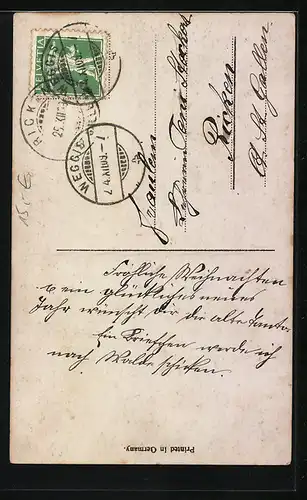 HELVETIA
RICKEN
25.XII.
WEGGIS
24.XII.09.-7
15,-€
Fräulein
Ricken
Ct. St. Gallen
Fröhliche Weihnachten
& ein glückliches neues
Jahr wünscht dir die alte Tante.
Ein Brieflein werde ich
nach Walde schicken.
Printed in Germany.